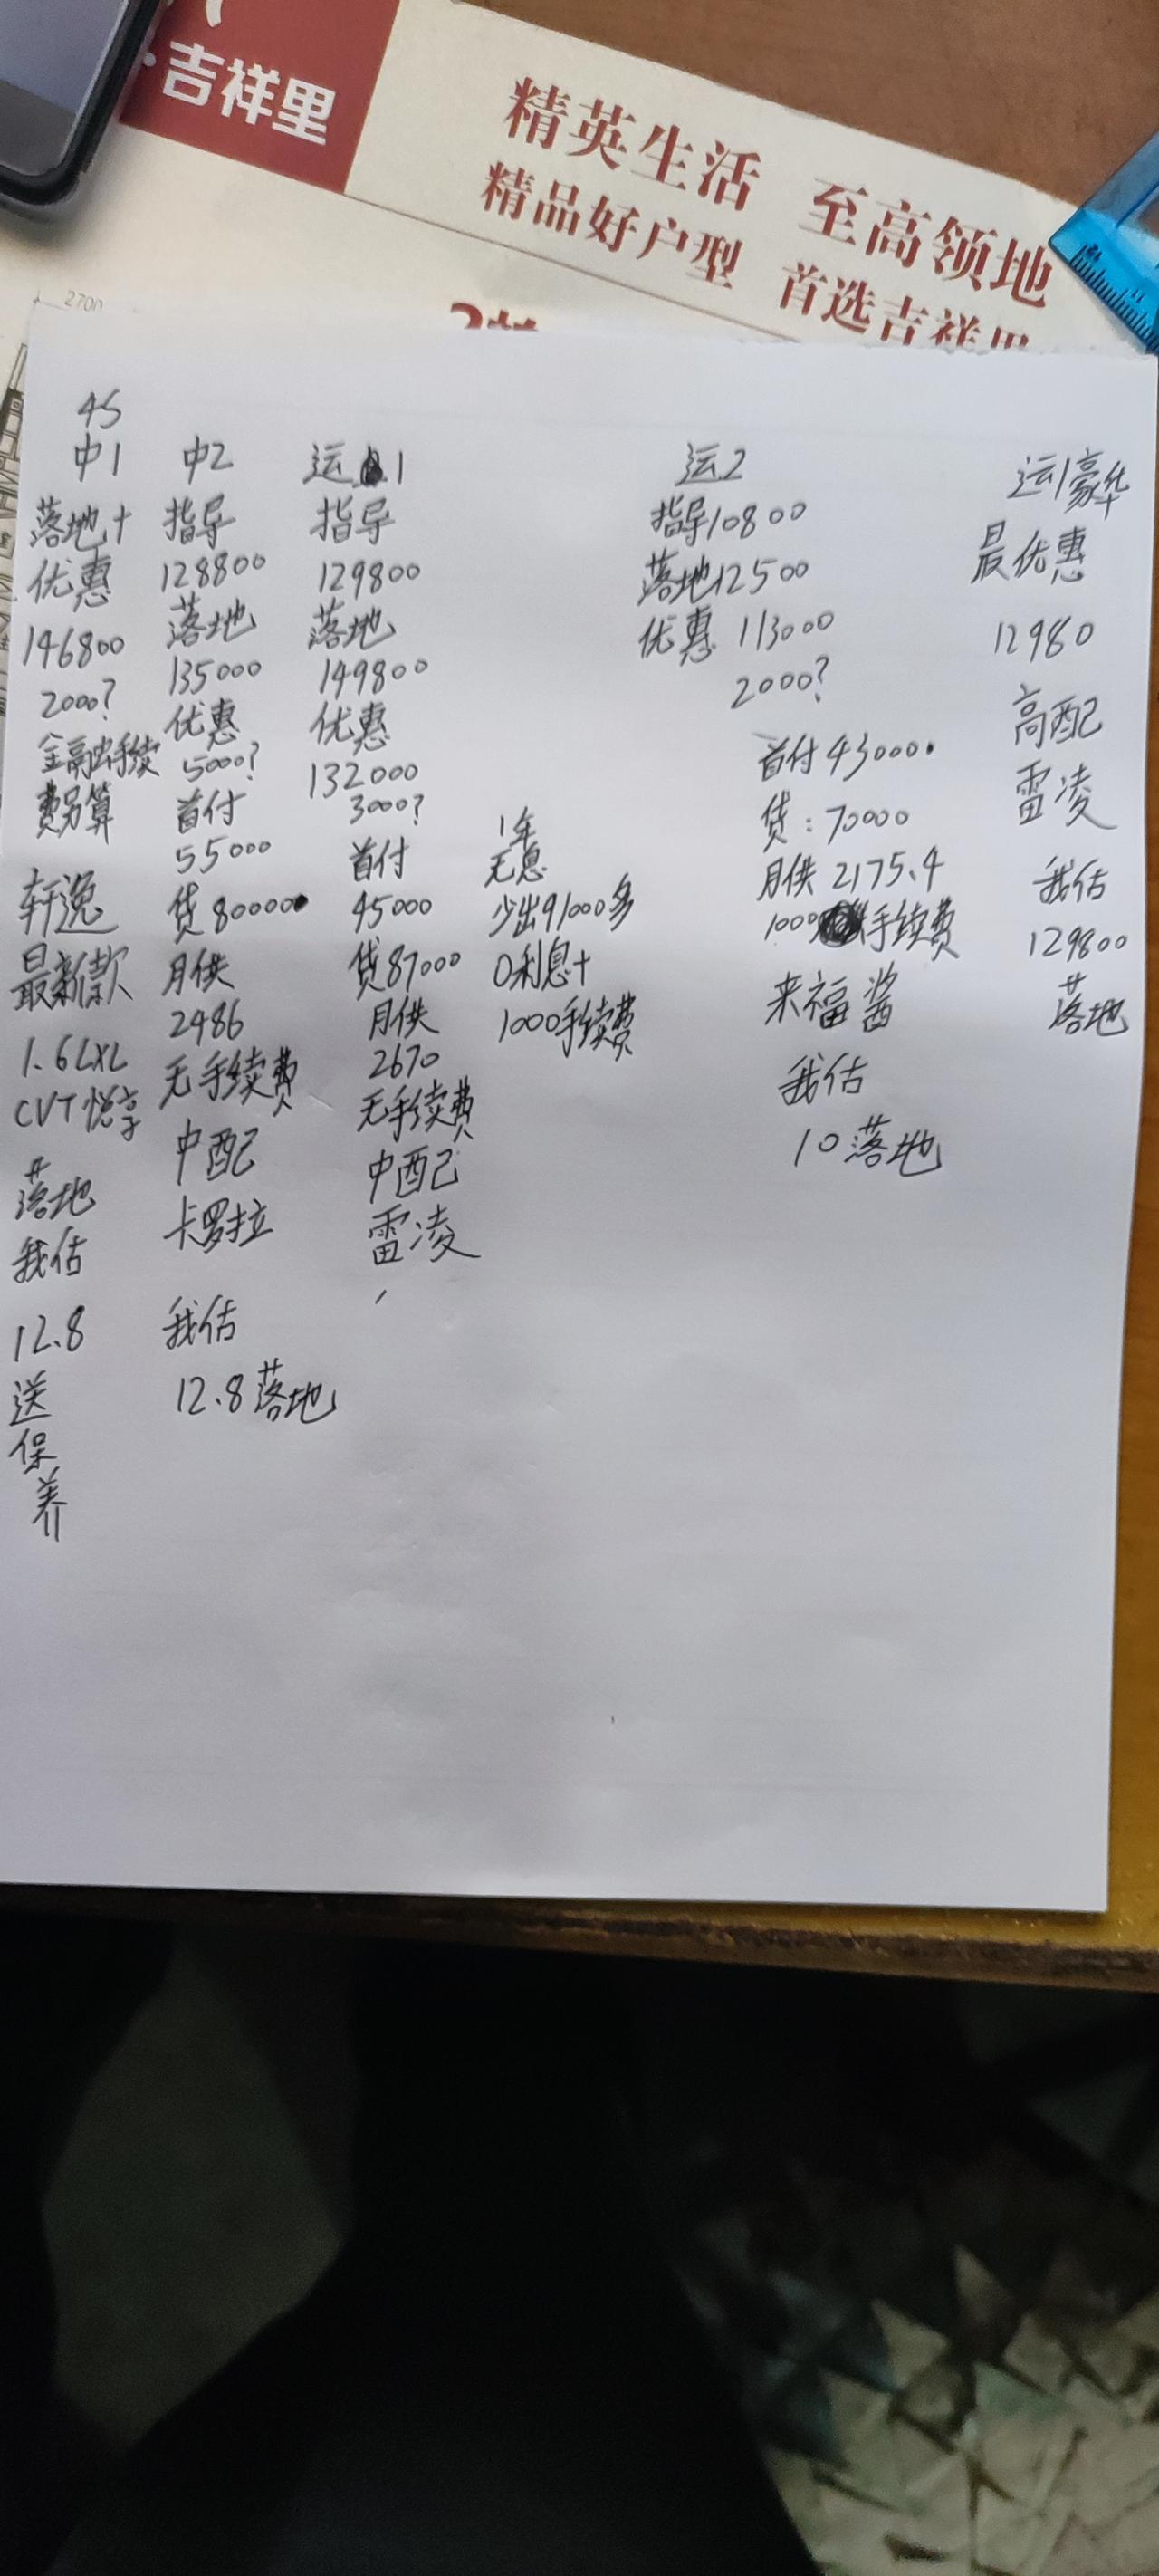 ·吉祥里
精英生活 至高领地
精品好户型 首选吉祥里
2700
4S
中1
落地+
优惠
146800
2000?
金融手续
费另算
轩逸
最新款
1.6LXL
CVT悦享
落地
我估
12.8
送
保
养
中2
指导
128800
落地
135000
优惠
5000?
首付
55000
贷80000
月供
2486
无手续费
中配
卡罗拉
我估
12.8落地
运1
指导
129800
落地
149800
优惠
132000
3000?
首付
45000
贷87000
月供
2670
无手续费
中配
雷凌
1年
无息
少出91000多
0利息+
1000手续费
运2
指导10800
落地12500
优惠 113000
2000?
首付43000.
贷:70000
月供 2175.4
1000手续费
来福酱
我估
10落地
运1豪华
最优惠
12980
高配
雷凌
我估
129800
落地